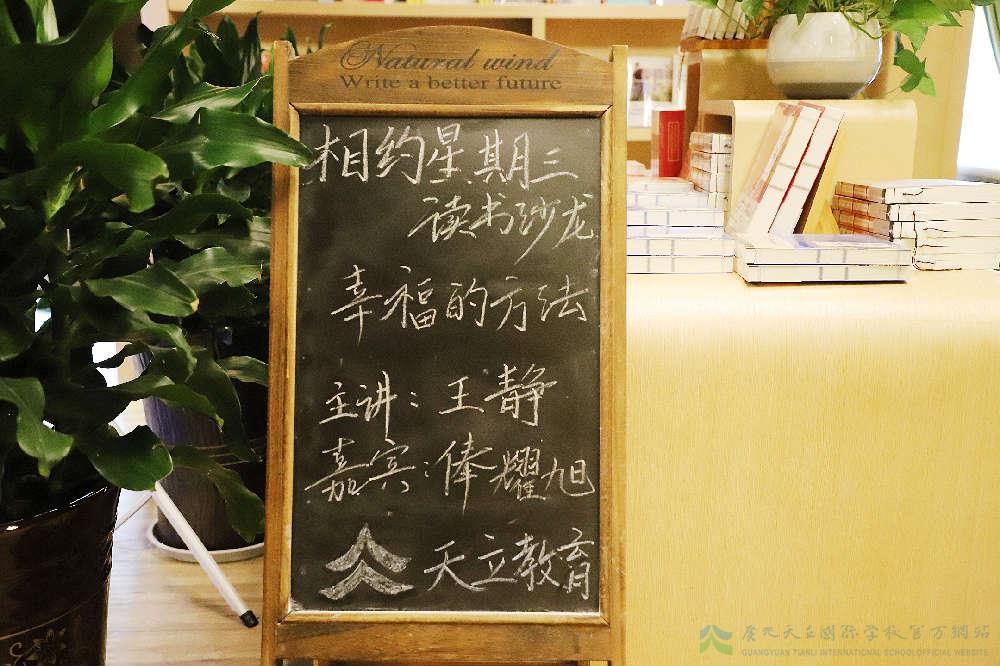 Natural wind
Write a better future
相约星期三
读书沙龙
幸福的方法
主讲：王静
嘉宾：俸耀旭
天立教育
广元天立國际学校官方網站
GUANGYUAN TIANLI INTERNATIONAL SCHOOLOFFICIAL WEBSITE